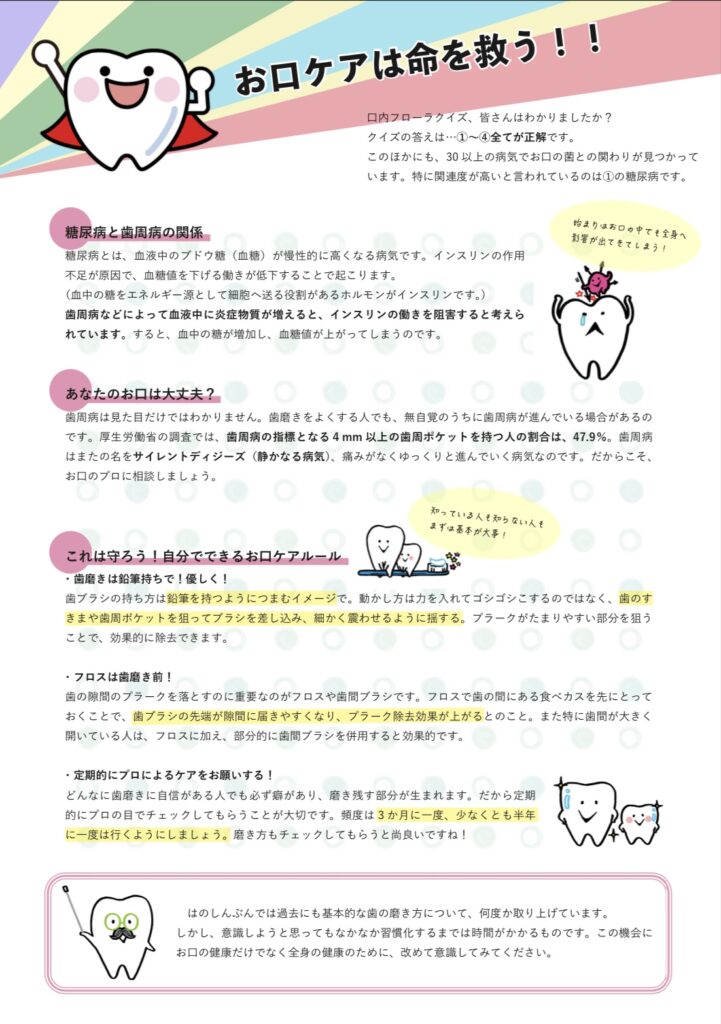 お口ケアは命を救う！！
口内フローラクイズ、皆さんはわかりましたか？
クイズの答えは…①～④全てが正解です。
このほかにも、30以上の病気でお口の菌との関わりが見つかって
います。特に関連度が高いと言われているのは①の糖尿病です。
糖尿病と歯周病の関係
糖尿病とは、血液中のブドウ糖（血糖）が慢性的に高くなる病気です。インスリンの作用
不足が原因で、血糖値を下げる働きが低下することで起こります。
（血中の糖をエネルギー源として細胞へ送る役割があるホルモンがインスリンです。）
歯周病などによって血液中に炎症物質が増えると、インスリンの働きを阻害すると考えら
れています。すると、血中の糖が増加し、血糖値が上がってしまうのです。
始まりはお口の中でも全身へ
影響が出てきてしまう！
あなたのお口は大丈夫？
歯周病は見た目だけではわかりません。歯磨きをよくする人でも、無自覚のうちに歯周病が進んでいる場合があるの
です。厚生労働省の調査では、歯周病の指標となる4mm以上の歯周ポケットを持つ人の割合は、47.9%。歯周病
はまたの名をサイレントディジーズ（静かなる病気）、痛みがなくゆっくりと進んでいく病気なのです。だからこそ、
お口のプロに相談しましょう。
知っている人も知らない人も
まずは基本が大事！
これは守ろう！自分でできるお口ケアルール
・歯磨きは鉛筆持ちで！優しく！
歯ブラシの持ち方は鉛筆を持つようにつまむイメージで。動かし方は力を入れてゴシゴシこするのではなく、歯のす
きまや歯周ポケットを狙ってブラシを差し込み、細かく震わせるように揺する。プラークがたまりやすい部分を狙う
ことで、効果的に除去できます。
・フロスは歯磨き前！
歯の隙間のプラークを落とすのに重要なのがフロスや歯間ブラシです。フロスで歯の間にある食べカスを先にとって
おくことで、歯ブラシの先端が隙間に届きやすくなり、プラーク除去効果が上がるとのこと。また特に歯間が大きく
開いている人は、フロスに加え、部分的に歯間ブラシを併用すると効果的です。
・定期的にプロによるケアをお願いする！
どんなに歯磨きに自信がある人でも必ず癖があり、磨き残す部分が生まれます。だから定期
的にプロの目でチェックしてもらうことが大切です。頻度は3か月に一度、少なくとも半年
に一度は行くようにしましょう。磨き方もチェックしてもらうと尚良いですね！
はのしんぶんでは過去にも基本的な歯の磨き方について、何度か取り上げています。
しかし、意識しようと思ってもなかなか習慣化するまでは時間がかかるものです。この機会に
お口の健康だけでなく全身の健康のために、改めて意識してみてください。